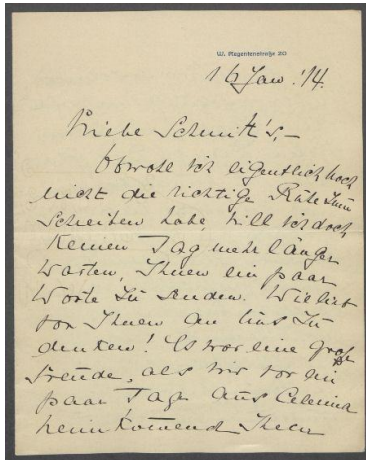 W. Regentenstraße 20
16 Jan. '14.
Liebe Schmitt's,—
Obwohl ich eigentlich noch
nicht die richtige Ruhe zum
Schreiben habe, will ich doch
keinen Tag mehr länger
warten, Ihnen ein paar
Worte zu senden. Wie lieb
von Ihnen an uns zu
denken! Es war eine große
Freude, als wir vor ein
paar Tage aus Celerina
heimkommend Ihren